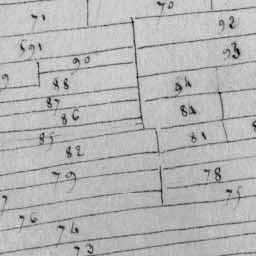 71 70
92
591
93
90
9 88 94
87 84
86
85 81 8
82
79 78
75
7
76
74
73